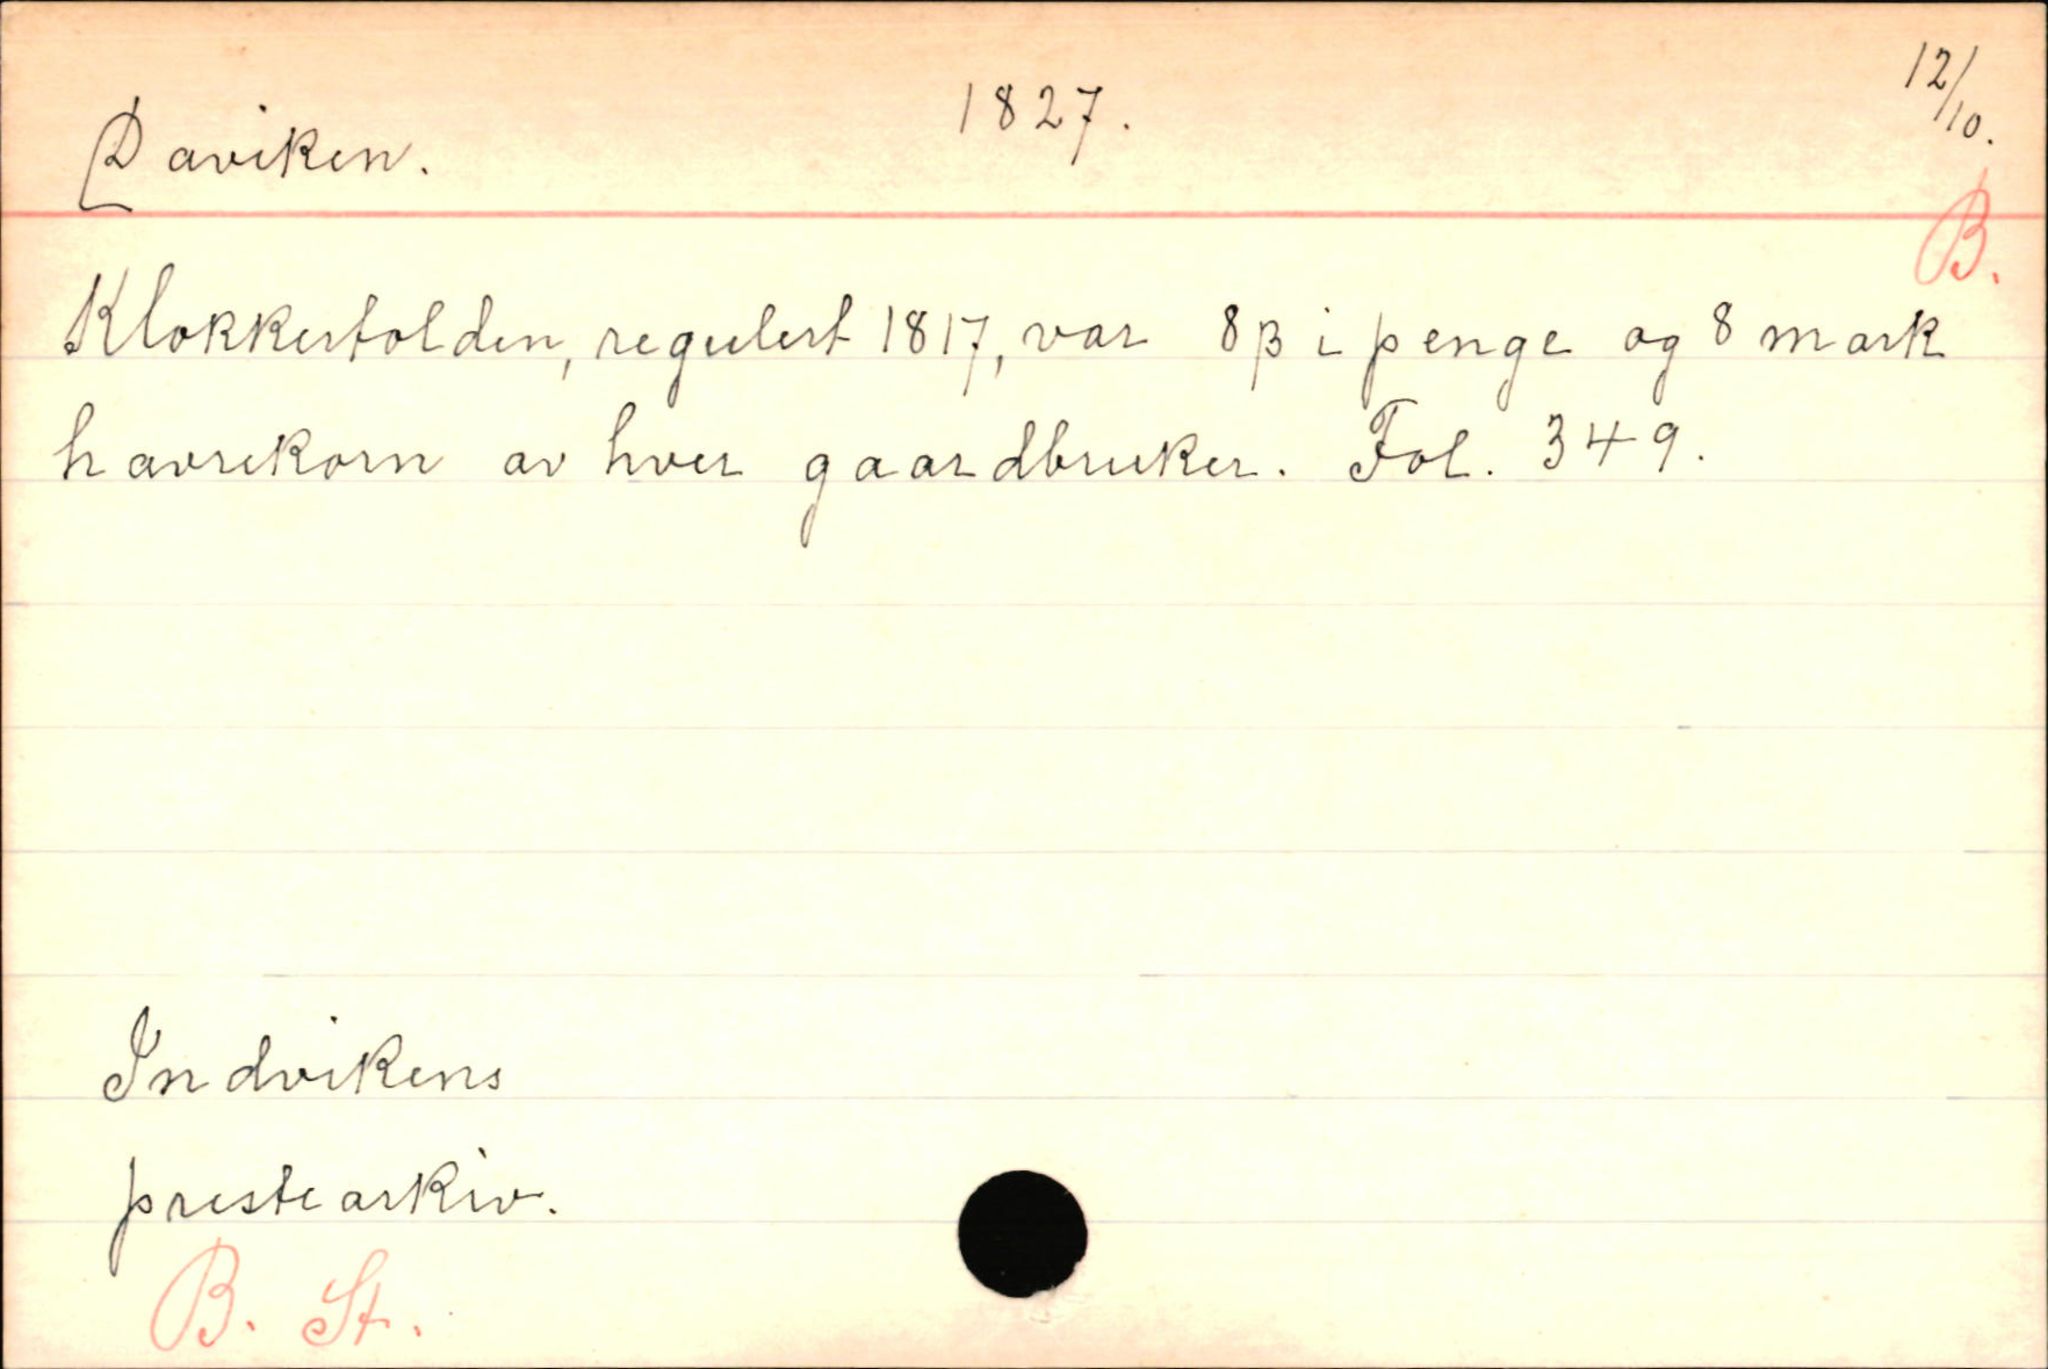 Daviken.
1827.
12/10.
B.
Klokkertolden, regulert 1817, var 8 β i penge og 8 mark
havrekorn av hver gaardbruker. Fol. 349.
Indvikens
prestearkiv.
B. St.